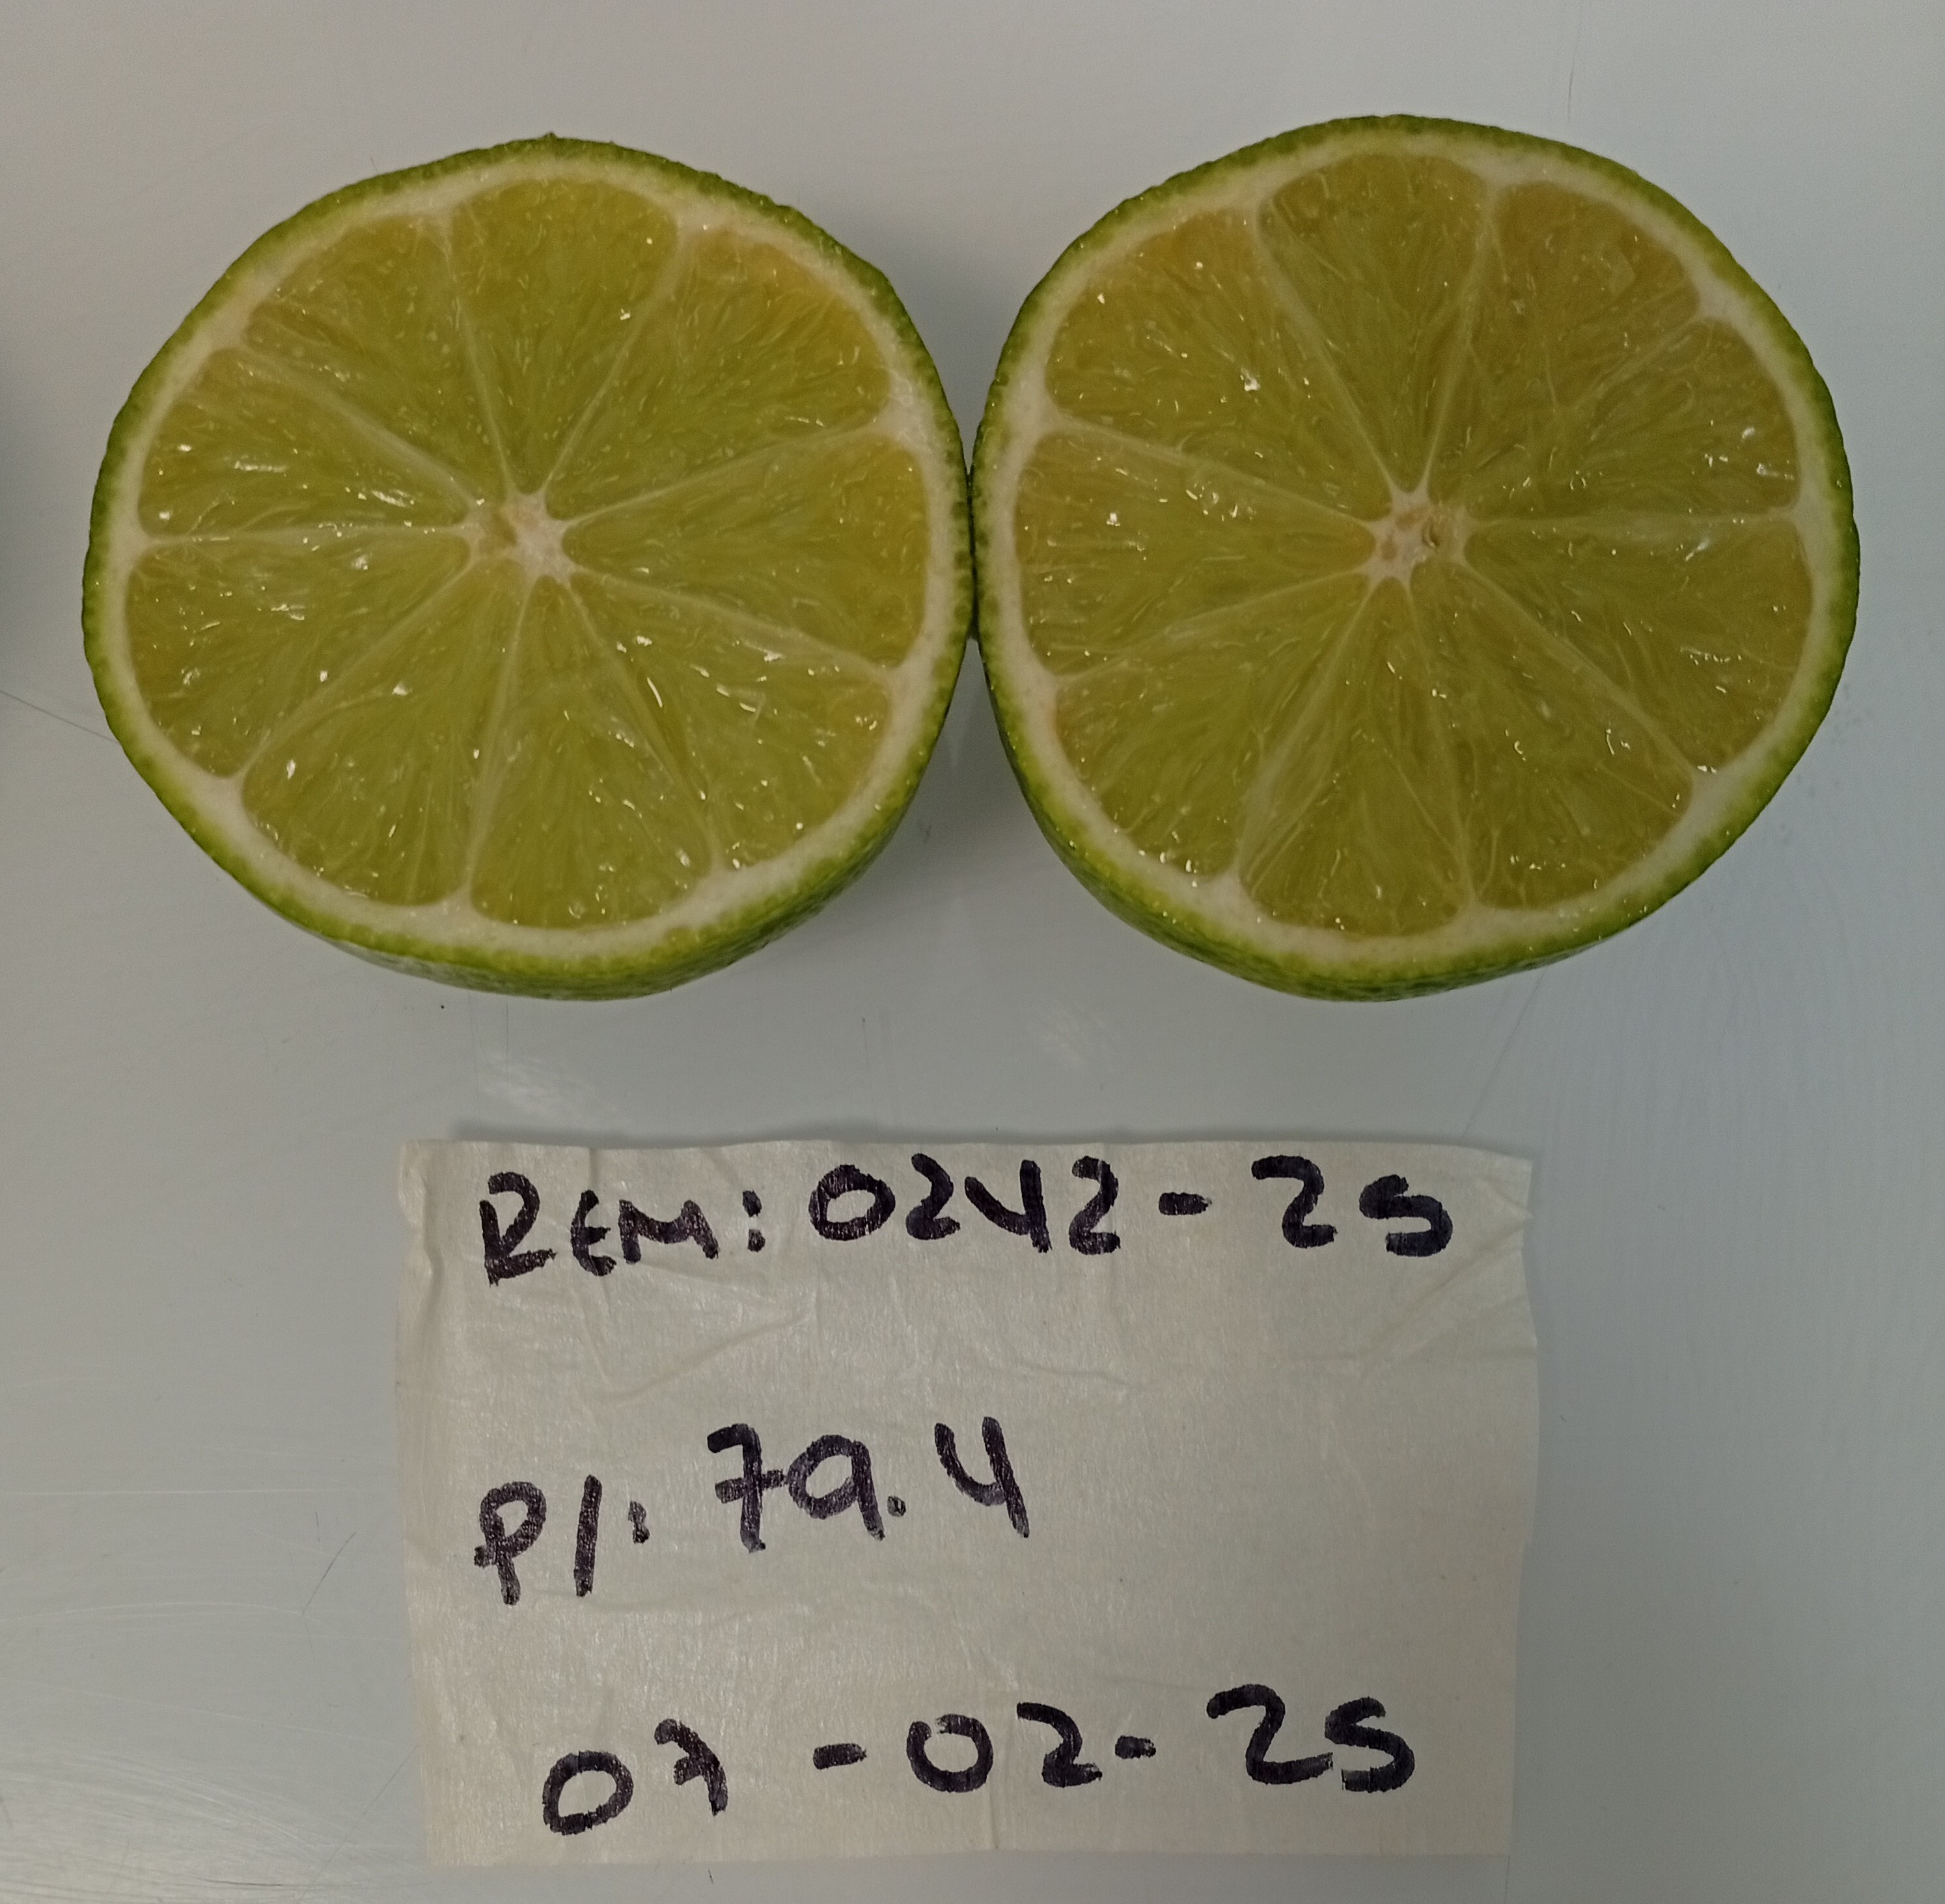 REM: 0242-25
P/: 79.4
07-02-25